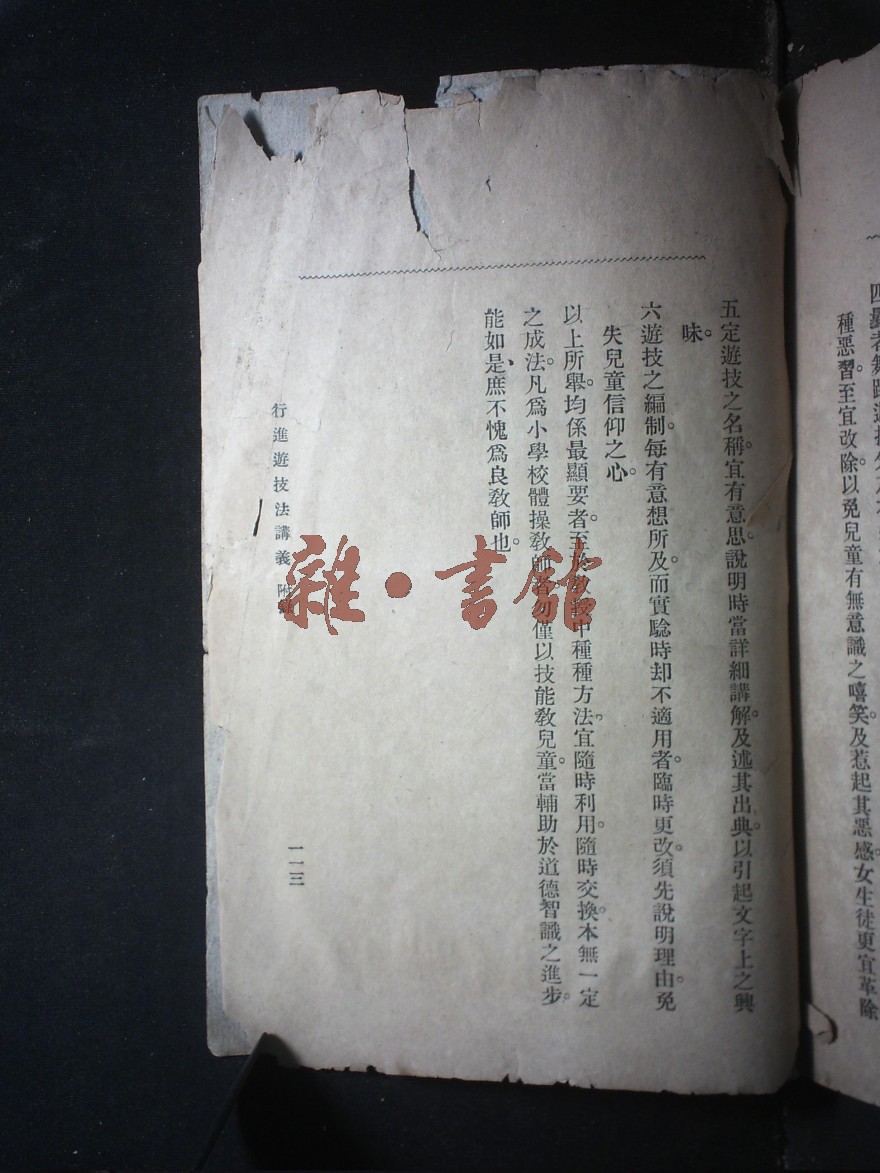 種惡習。至宜改除。以免兒童有無意識之嘻笑。及惹起其惡感。女生徒更宜革除
五定遊技之名稱。宜有意思。說明時當詳細講解。及述其出典。以引起文字上之興
味。
六遊技之編制。每有意想所及。而實驗時却不適用者。臨時更改。須先說明理由。免
失兒童信仰之心。
以上所舉。均係最顯要者。至教授中種種方法。宜隨時利用。隨時交換。本無一定
之成法。凡爲小學校體操教師者。勿僅以技能教兒童。當輔助於道德智識之進步。
能如是、庶不愧爲良教師也。
行進遊技法講義 附
一一三
雜·書館